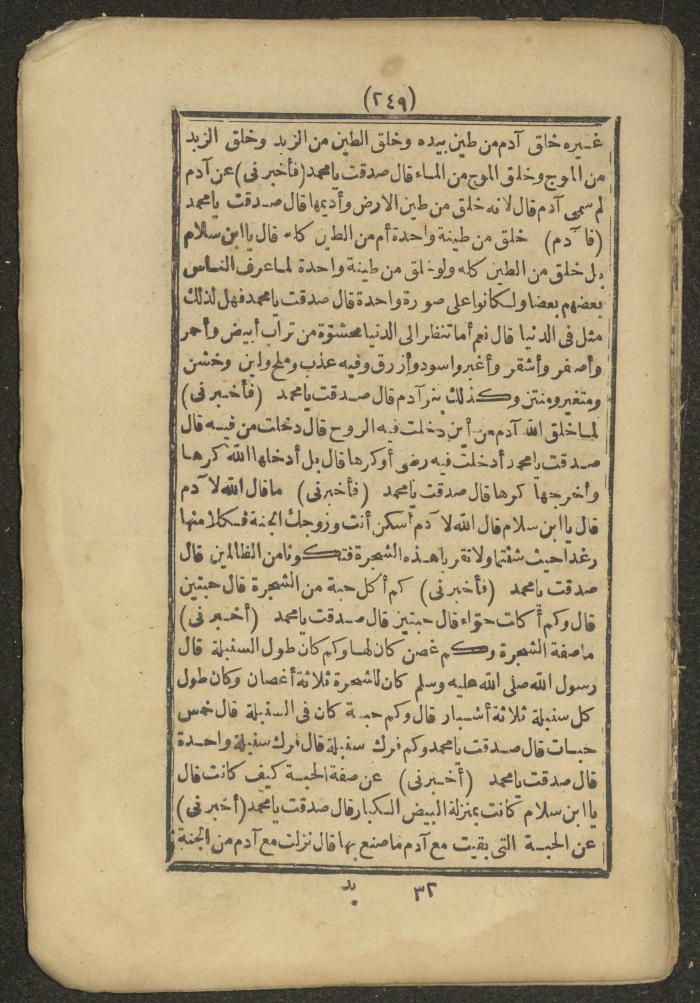 (٢٤٩)
غيره خلق آدم من طين بيده وخلق الطين من الزبد وخلق الزبد
من الموج وخلق الموج من الماء قال صدقت يا محمد (فأخبرني) عن آدم
لم سمى آدم قال لانه خلق من طين الارض وأديمها قال صدقت يا محمد
(فآدم) خلق من طينة واحدة أم من الطين كله قال يا ابن سلام
بل خلق من الطين كله ولو خلق من طينة واحدة لما عرف الناس
بعضهم بعضا ولكانوا على صورة واحدة قال صدقت يا محمد فهل لذلك
مثل فى الدنيا قال نعم أما تنظر الى الدنيا محشوّة من تراب أبيض وأحمر
وأصفر وأشقر وأغبر واسود وأزرق وفيه عذب وملح ولين وخشن
ومتغير ومنتن وكذلك بنو آدم قال صدقت يا محمد (فأخبرنى)
لما خلق الله آدم من أين دخلت فيه الروح قال دخلت من فيه قال
صدقت يا محمد أدخلت فيه رضى أو كرها قال بل أدخلها الله كرها
وأخرجها كرها قال صدقت يا محمد (فأخبرنى) ما قال الله لآدم
قال يا ابن سلام قال الله لآدم أسكن أنت وزوجك الجنة فكلا منها
رغدا حيث شئتما ولا تقربا هذه الشجرة فتكونا من الظالمين قال
صدقت يا محمد (فأخبرنى) كم أكل حبة من الشجرة قال حبتين
قال وكم أكلت حوّاء قال حبتين قال صدقت يا محمد (أخبرنى)
ما صفة الشجرة وكم غصن كان لها وكم كان طول السنبلة قال
رسول الله صلى الله عليه وسلم كان للشجرة ثلاثة أغصان وكان طول
كل سنبلة ثلاثة أشبار قال وكم حبة كان فى السنبلة قال خمس
حبات قال صدقت يا محمد وكم فرك سنبلة قال فرك سنبلة واحدة
قال صدقت يا محمد (أخبرنى) عن صفة الحبة كيف كانت قال
يا ابن سلام كانت بمنزلة البيض الكبار قال صدقت يا محمد (أخبرنى)
عن الحبة التى بقيت مع آدم ما صنع بها قال نزلت مع آدم من الجنة
٣٢ يد